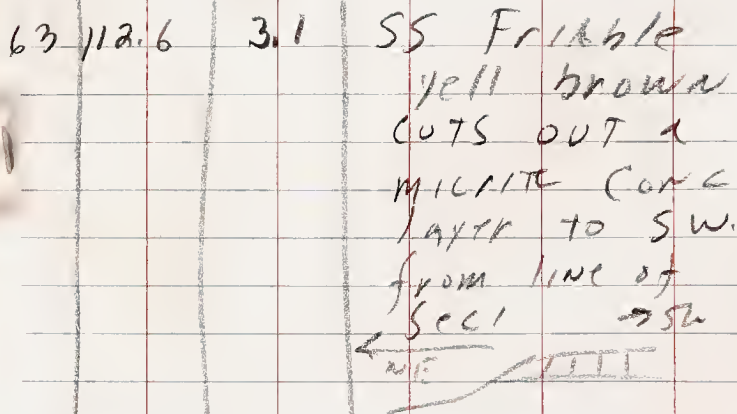 63 112.6 3.1 SS Friable
yell brown
CUTS OUT a
micrite Conc
layer to SW.
from line of
Sect →SW
NE